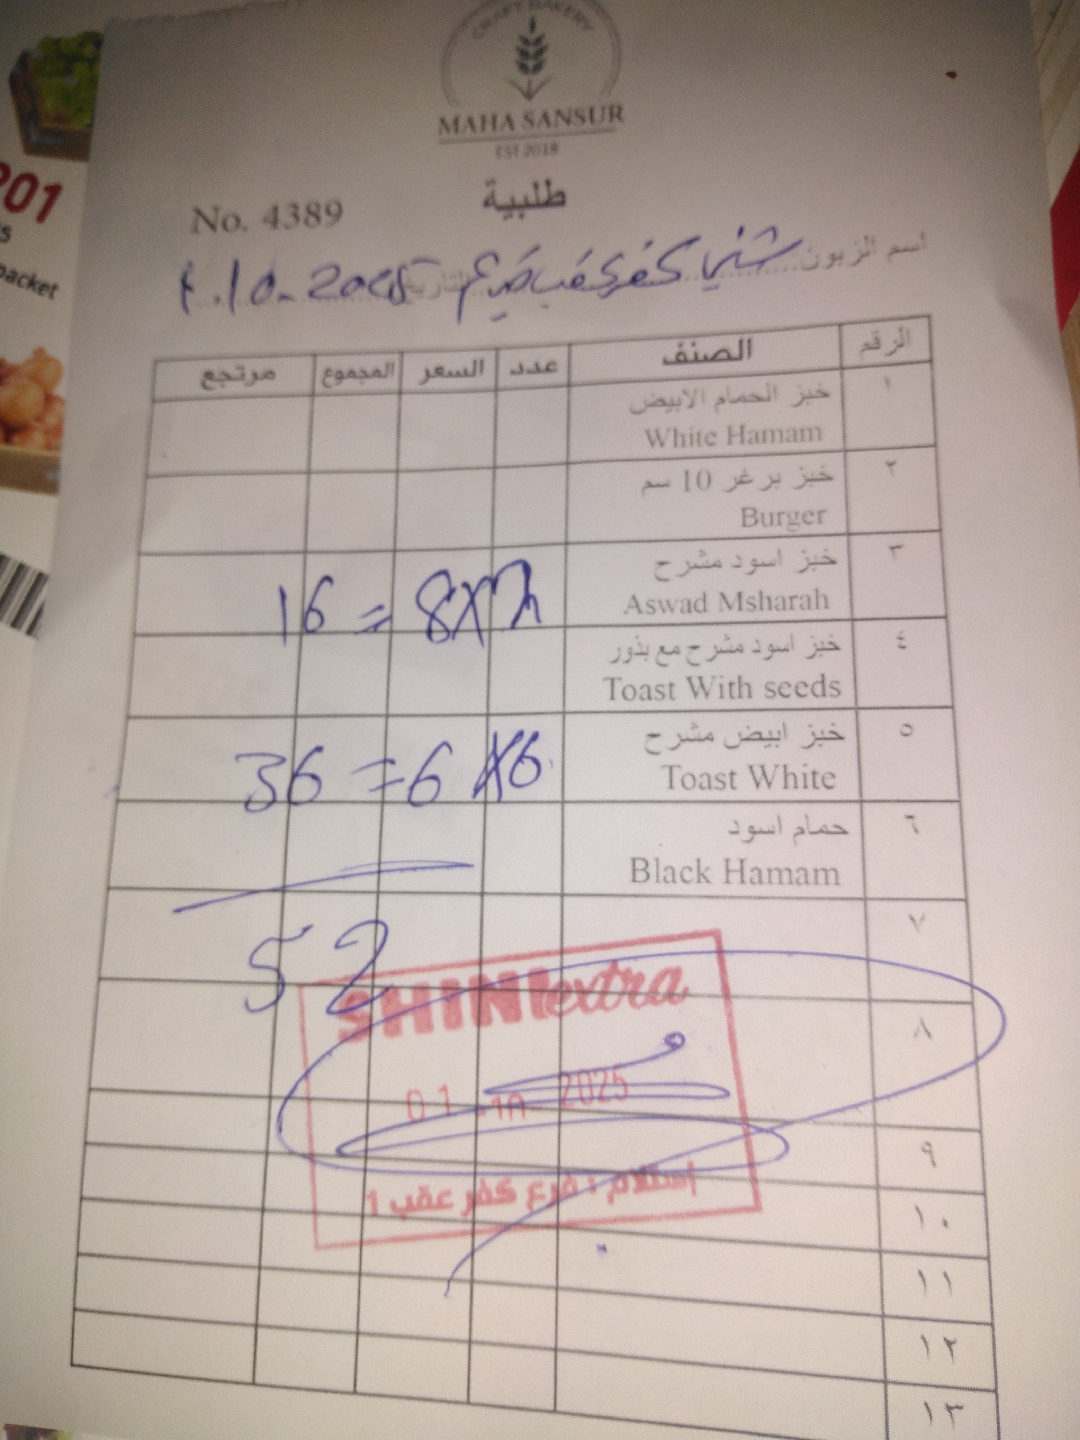 CRAFT BAKERY
MAHA SANSUR
EST 2018
طلبية
No. 4389
اسم الزبون شني كفر عقب فرع التاريخ 1.10.2025
الرقم الصنف عدد السعر المجموع مرتجع
١ خبز الحمام الابيض
White Hamam
٢ خبز برغر 10 سم
Burger
٣ خبز اسود مشرح
Aswad Msharah 2 X 8 = 16
٤ خبز اسود مشرح مع بذور
Toast With seeds
٥ خبز ابيض مشرح
Toast White 6 X 6 = 36
٦ حمام اسود
Black Hamam
٧
52
SHINI extra
٨
01 -10- 2025
٩
إستلام : فرع كفر عقب 1
١٠
١١
١٢
١٣
201
packet